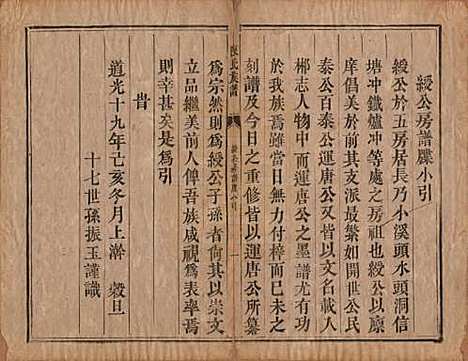 綬公房譜牒小引
綬公於五房居長乃小溪頭水頭洞信
塘冲鐵爐冲等處之房祖也綬公以廩
庠倡美於前其支派最繁如開世公民
泰公百泰公運唐公又以文名載人
郴志人物中而運唐公之墨譜尤有功
於我族焉雖當日無力付梓而已未之
刻譜及今日之重修皆以運唐公所纂
為宗然則為綬公子孫者皆以崇文
立品繼美前人俾吾族咸視為表率焉
則幸甚矣是為引
旹
道光十九年己亥冬月上澣 穀旦
十七世孫振玉謹識
氏族譜
綬公房譜牒小引
一